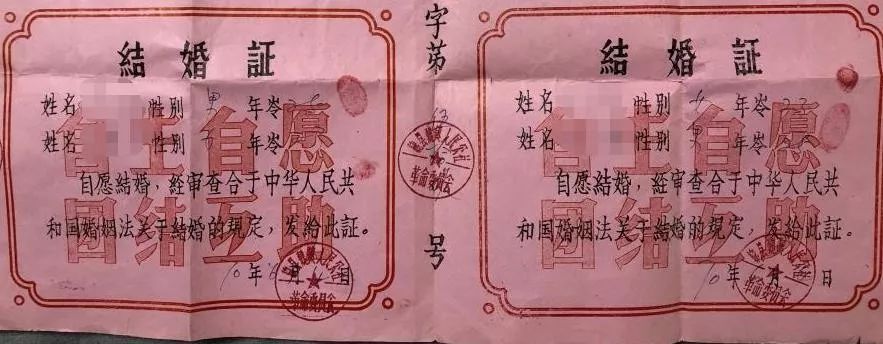 結婚証
姓名 性别 男 年岺
姓名 性别 女 年岺
自主自愿
自愿結婚,經审查合于中华人民共
团结互助
和国婚姻法关于結婚的規定,发給此証。
年 月 日
革命委員会
字第
63
人民公社
革命委員会
号
結婚証
姓名 性别 女 年岺
姓名 性别 男 年岺
自主自愿
自愿結婚,經审查合于中华人民共
团结互助
和国婚姻法关于結婚的規定,发給此証。
年 月 日
革命委員会